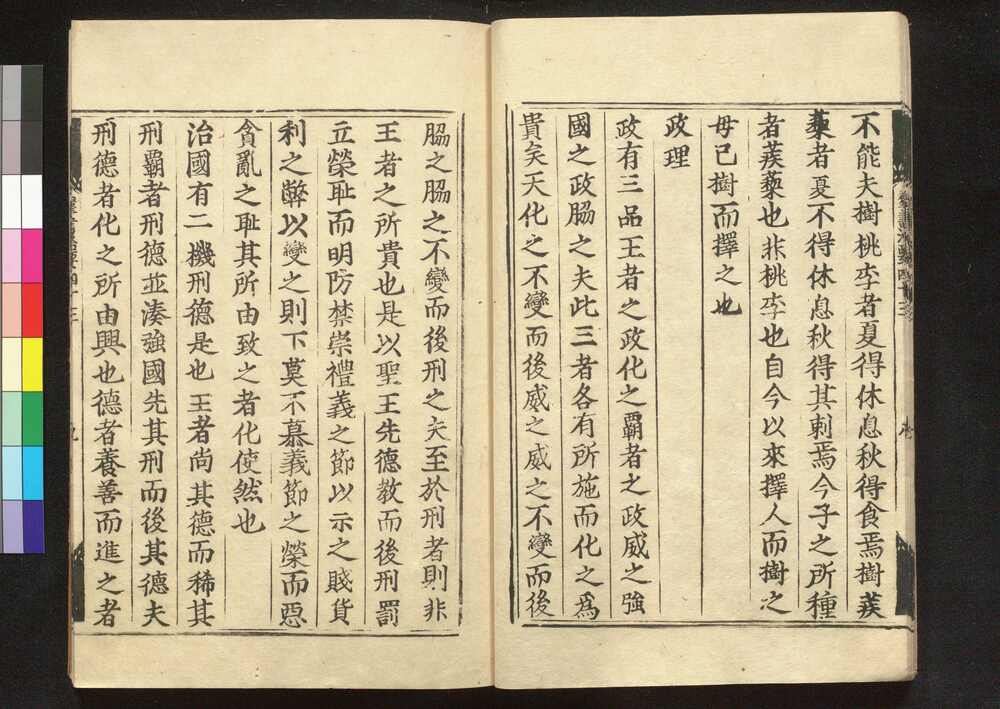 不能夫樹桃李者夏得休息秋得食焉樹蒺
蔾者夏不得休息秋得其刺焉今子之所種
者蒺蔾也非桃李也自今以來擇人而樹之
毋已樹而擇之也
政理
政有三品王者之政化之霸者之政威之強
國之政脇之夫此三者各有所施而化之爲
貴矣夫化之不變而後威之威之不變而後
脇之脇之不變而後刑之夫至於刑者則非
王者之所貴也是以聖王先德教而後刑罰
立榮耻而明防禁崇禮義之節以示之賤貨
利之弊以變之則下莫不慕義節之榮而惡
貪亂之耻其所由致之者化使然也
治國有二機刑德是也王者尚其德而稀其
刑霸者刑德並湊強國先其刑而後其德夫
刑德者化之所由興也德者養善而進之者